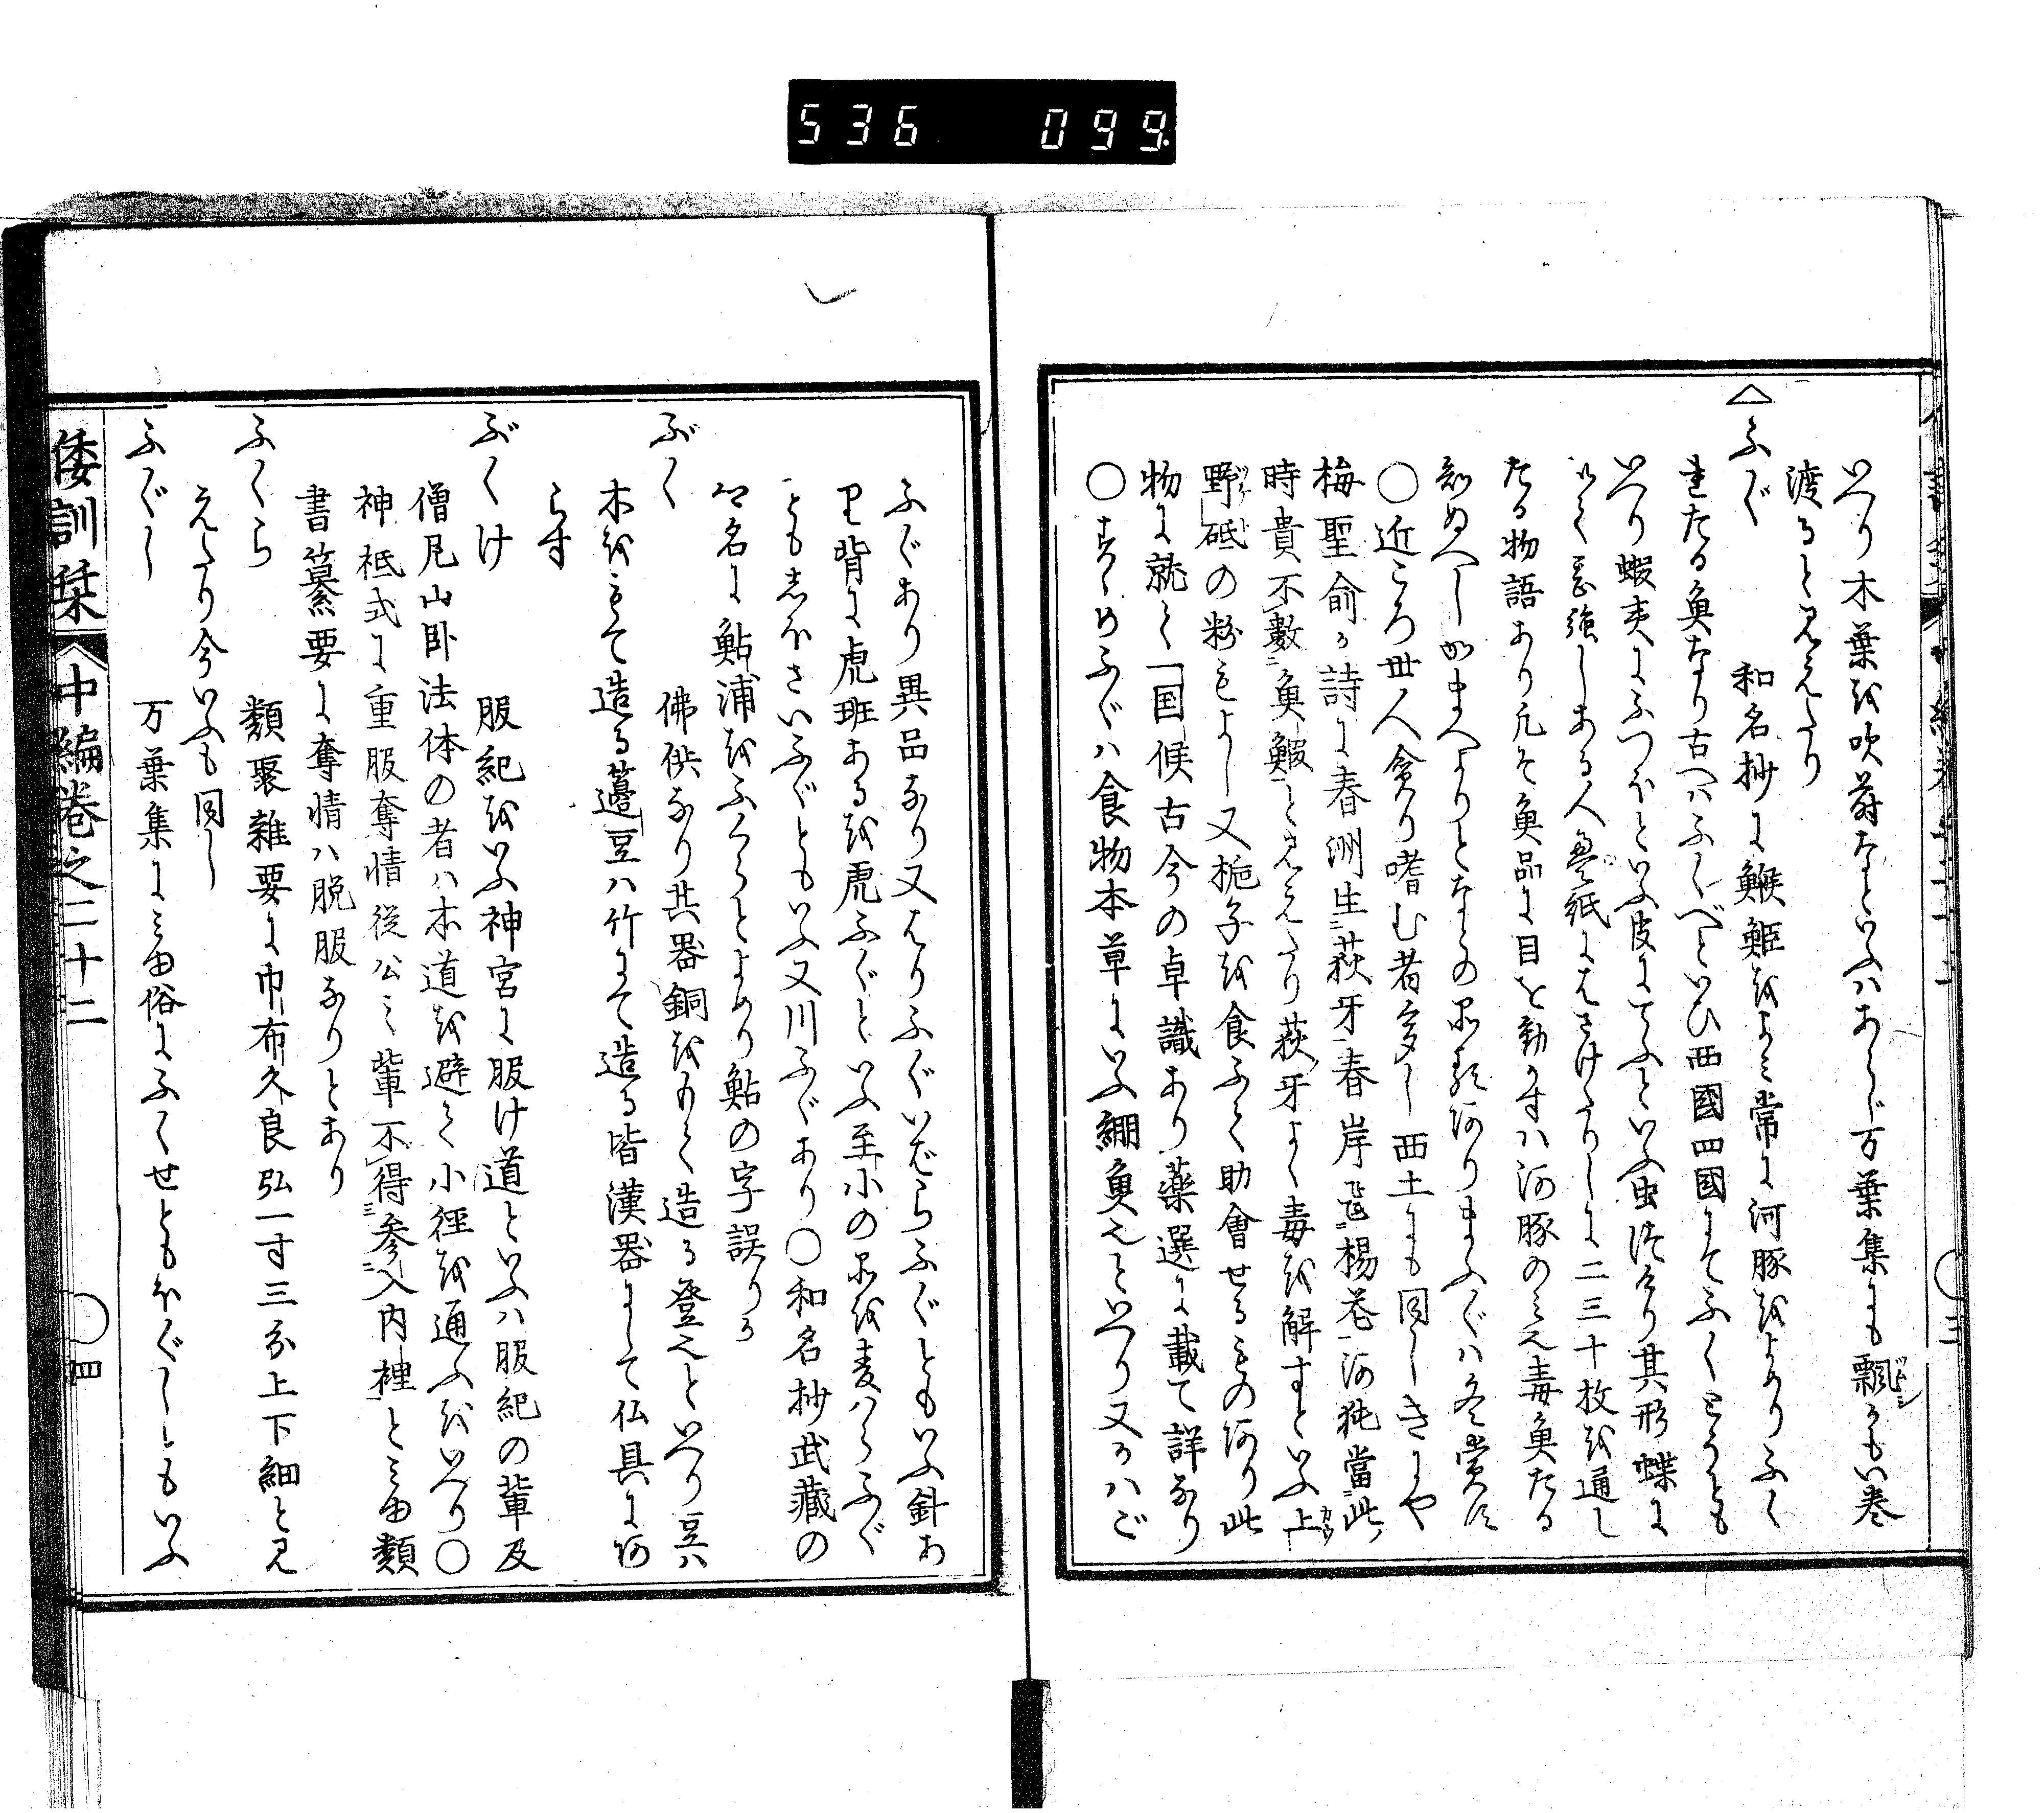 536 099
いへり木葉を吹蒻なといふハあらし万葉集にも飄かもい巻
渡ると見えたり
△ふぐ 和名抄に鯸䱌をよみ常に河豚をよめりふく
れたる魚なり古へハふくべといひ西國四國にてふくとうとも
いへり蝦夷にふつほといふ皮にてふといふ虫
其形蝶に
ある人 紙にはさけたりしに二三十枚を通し
たる物語あり凡そ魚品に目を動かすハ河豚のみえ毒魚たる
知ぬへし
〇近ころ世人貪り嗜む者多し西土にも同しきにや
梅聖俞か詩に春洲生荻牙春岸飛楊花河豘當此
時貴不數魚鰕と見えたり荻牙よく毒を解すといふ上
野砥の粉もよし又梔子を食ふて助會せるもの阿り此
物に就て国候古今の卓識あり薬選に載て詳なり
〇すゝめふぐハ食物本草にいふ綳魚也といへり又かハご
ふぐあり異品なり又はりふぐいばらふぐともいふ針あ
り背に虎班あるを虎ふぐといふ至小の品を麦ハらふぐ
ともしほさいふぐともいふ又川ふぐあり〇和名抄武藏の
郷名に鮎浦をふくらとよめり鮎の字誤りか
ぶく 佛供なり其器銅をもて造る登也といへり豆ハ
木をもて造る籩豆ハ竹にて造る皆漢器にして仏具に阿
らす
ぶくけ 服紀をいふ神宮に服け道といふハ服紀の輩及
僧尼山卧法体の者ハ本道を避て小徑を通ふをいへり〇
神祇式に重服奪情従公之輩不得参入内裡とみゆ類
書纂要に奪情ハ脱服なりとあり
ふくら 類聚雜要に巾布久良弘一寸三分上下細と見
えたり今いふも同し
ふぐし 万葉集にみゆ俗にふくせともほぐしともいふ
倭訓栞 中編巻之二十二 〇四